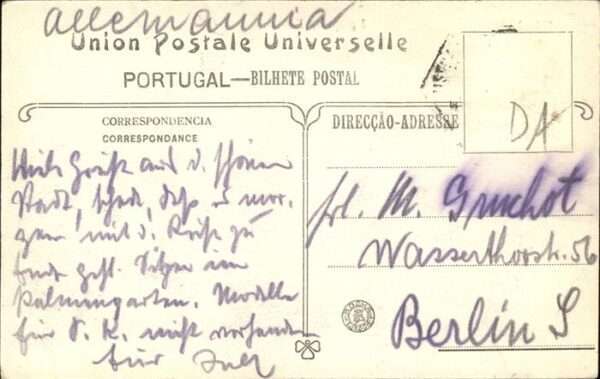 Allemannia
Union Postale Universelle
PORTUGAL—BILHETE POSTAL
CORRESPONDENCIA
CORRESPONDANCE
DIRECÇÃO-ADRESSE
DA
Viele Grüße aus d. schönen
Stadt, schade, daß es mor-
gen mit d. Reise zu
Ende geht. Sitzen im
Palmengarten. Modelle
für S. K. nicht vorhanden
frl. M. Gruchot
Wasserthorstr. 56
Berlin S